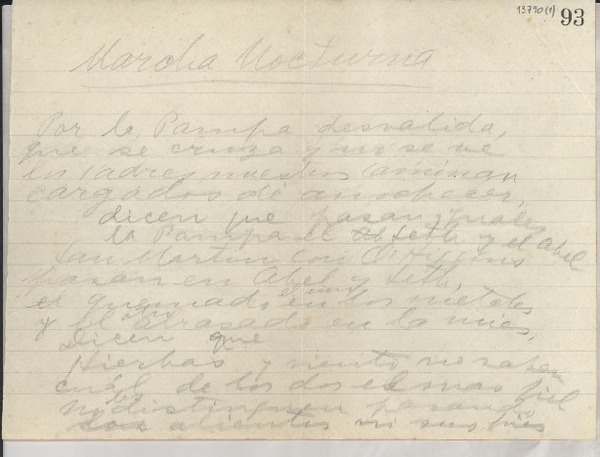 13790(1) 93
Marcha Nocturna
Por la Pampa desvalida,
que se cruza y no se ve
los Padres nuestros caminan
cargados de anochecer,
dicen que pasan iguales
la Pampa el Seth y el Abel
San Martín con O'Higgins
pasan en Abel y Seth,
el quemado en los metales
el uno
y el otro atrasado en la mies,
Dicen que
Hierbas y viento no saben
cuál de los dos es mas fiel
no distinguen pasando
alientos ni sus pies